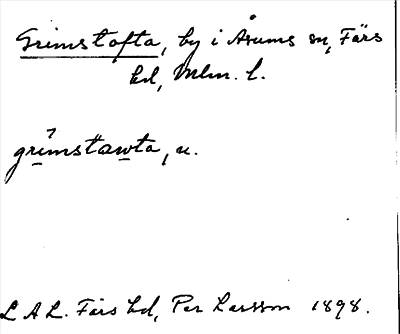 Grimstofta, by i Åsums sn, Färs
hd, Mlm. l.
grimstawta, u.
L A L. Färs hd, Per Larsson 1898.